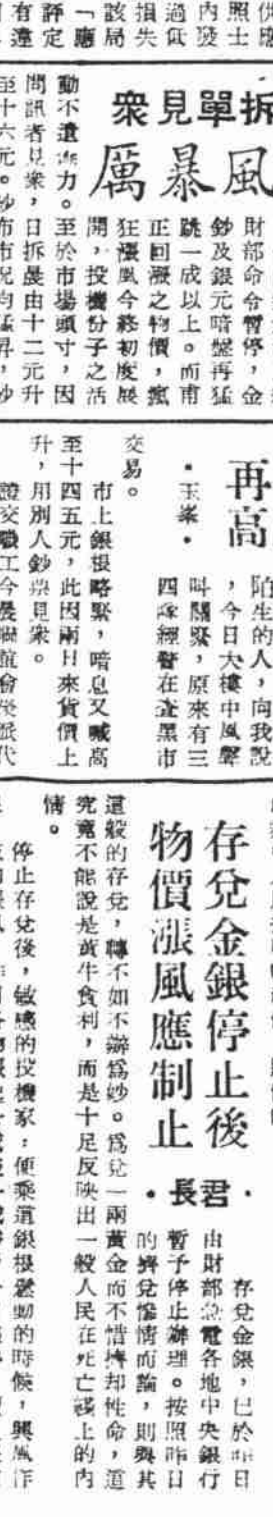 供應
照士
內發
過低
損失
該局
「應
評定
有違
拆單見衆
風暴厲
財部命令暫停，金
鈔及銀元暗盤再猛
跳一成以上。而甫
正回漲之物價，瘋
狂漲風今終初度展
開，投機份子之活
動不遺餘力。至於市場頭寸，因
問訊者見衆，日拆晨由十二元升
至十六元。紗布市况均猛昇，紗
再高
•玉崟•
陌生的人，向我說
，今日大樓中風聲
叫關緊，原來有三
四嗓經警在查黑市
交易。
市上銀根略緊，暗息又喊高
至十四五元，此因兩日來貨價上
升，用別人鈔票見衆。
證交職工今晨聯誼會發派代
存兌金銀停止後
物價漲風應制止
•君長•
存兌金銀，已於昨日
由財部急電各地中央銀行
暫予停止辦理。按照昨日
的擠兌慘情而論，則與其
這般的存兌，轉不如不辦爲妙。爲兌一兩黃金而不惜擠却性命，這
究竟不能說是黃牛食利，而是十足反映出一般人民在死亡綫上的內
情。
停止存兌後，敏感的投機家，便乘這銀根鬆動的時候，興風作